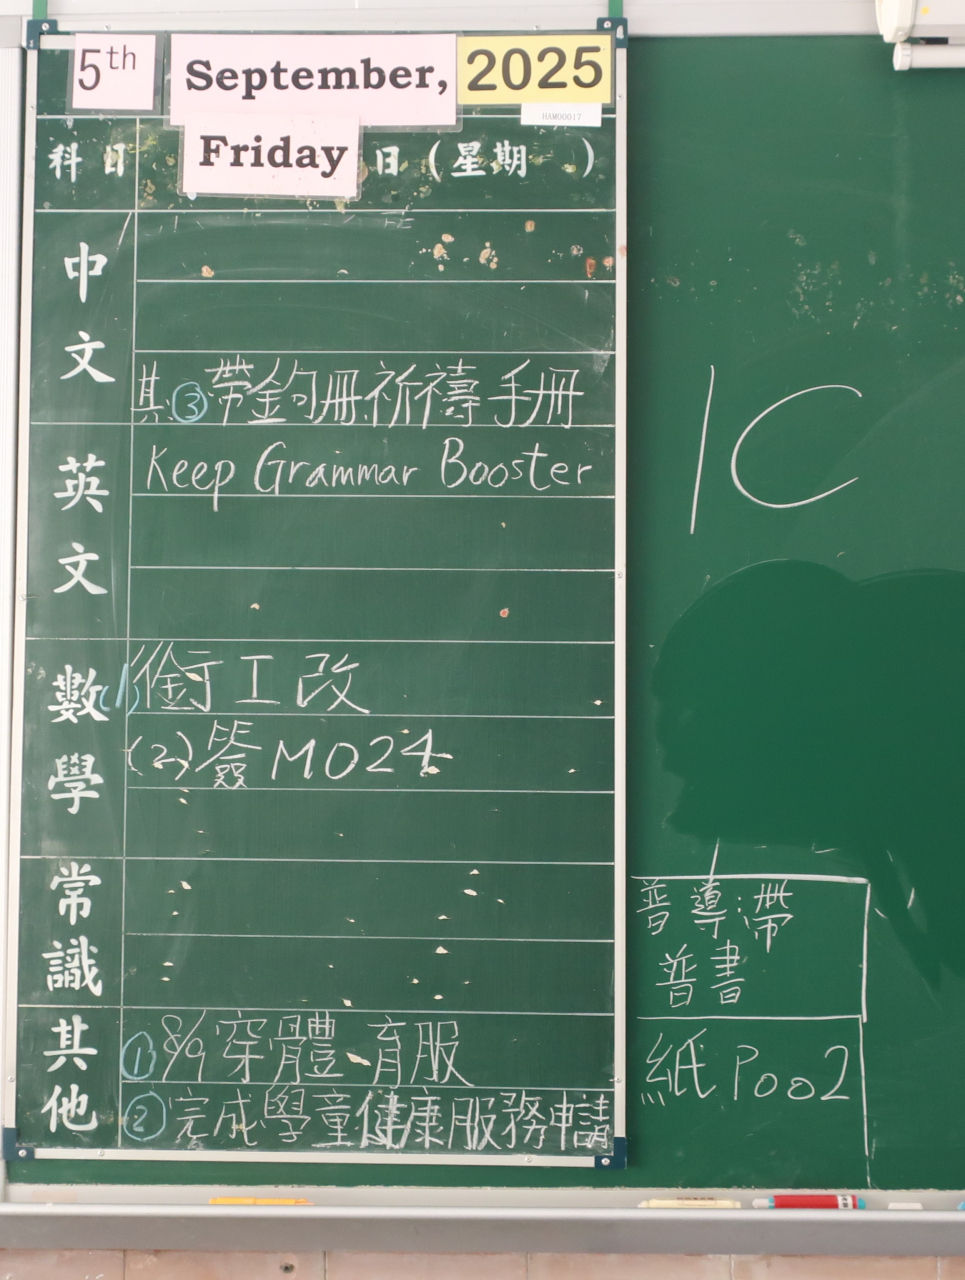 5th September, 2025
HAM00017
Friday
科目 日(星期 )
中文
其.③帶金句冊祈禱手冊
英文
Keep Grammar Booster
數學
(1)銜工改
(2)簽M024
常識
其他
①8/9穿體育服
②完成學童健康服務申請
1C
普導:帶
普書
紙P002